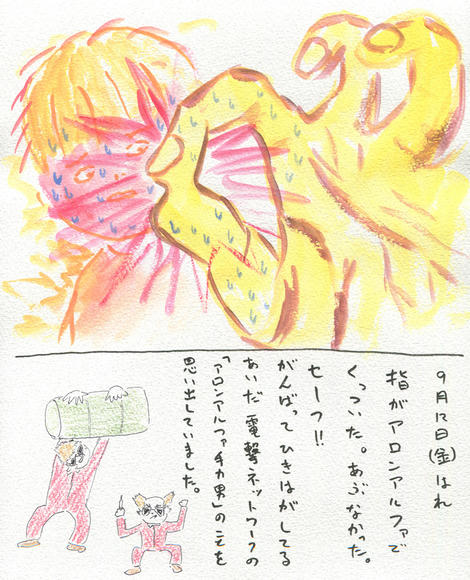 9月12日(金)はれ
指がアロンアルファで
くっついた。あぶなかった。
セーフ!!
がんばってひきはがしてる
あいだ電撃ネットワークの
「アロンアルファチカ男」のことを
思い出していました。